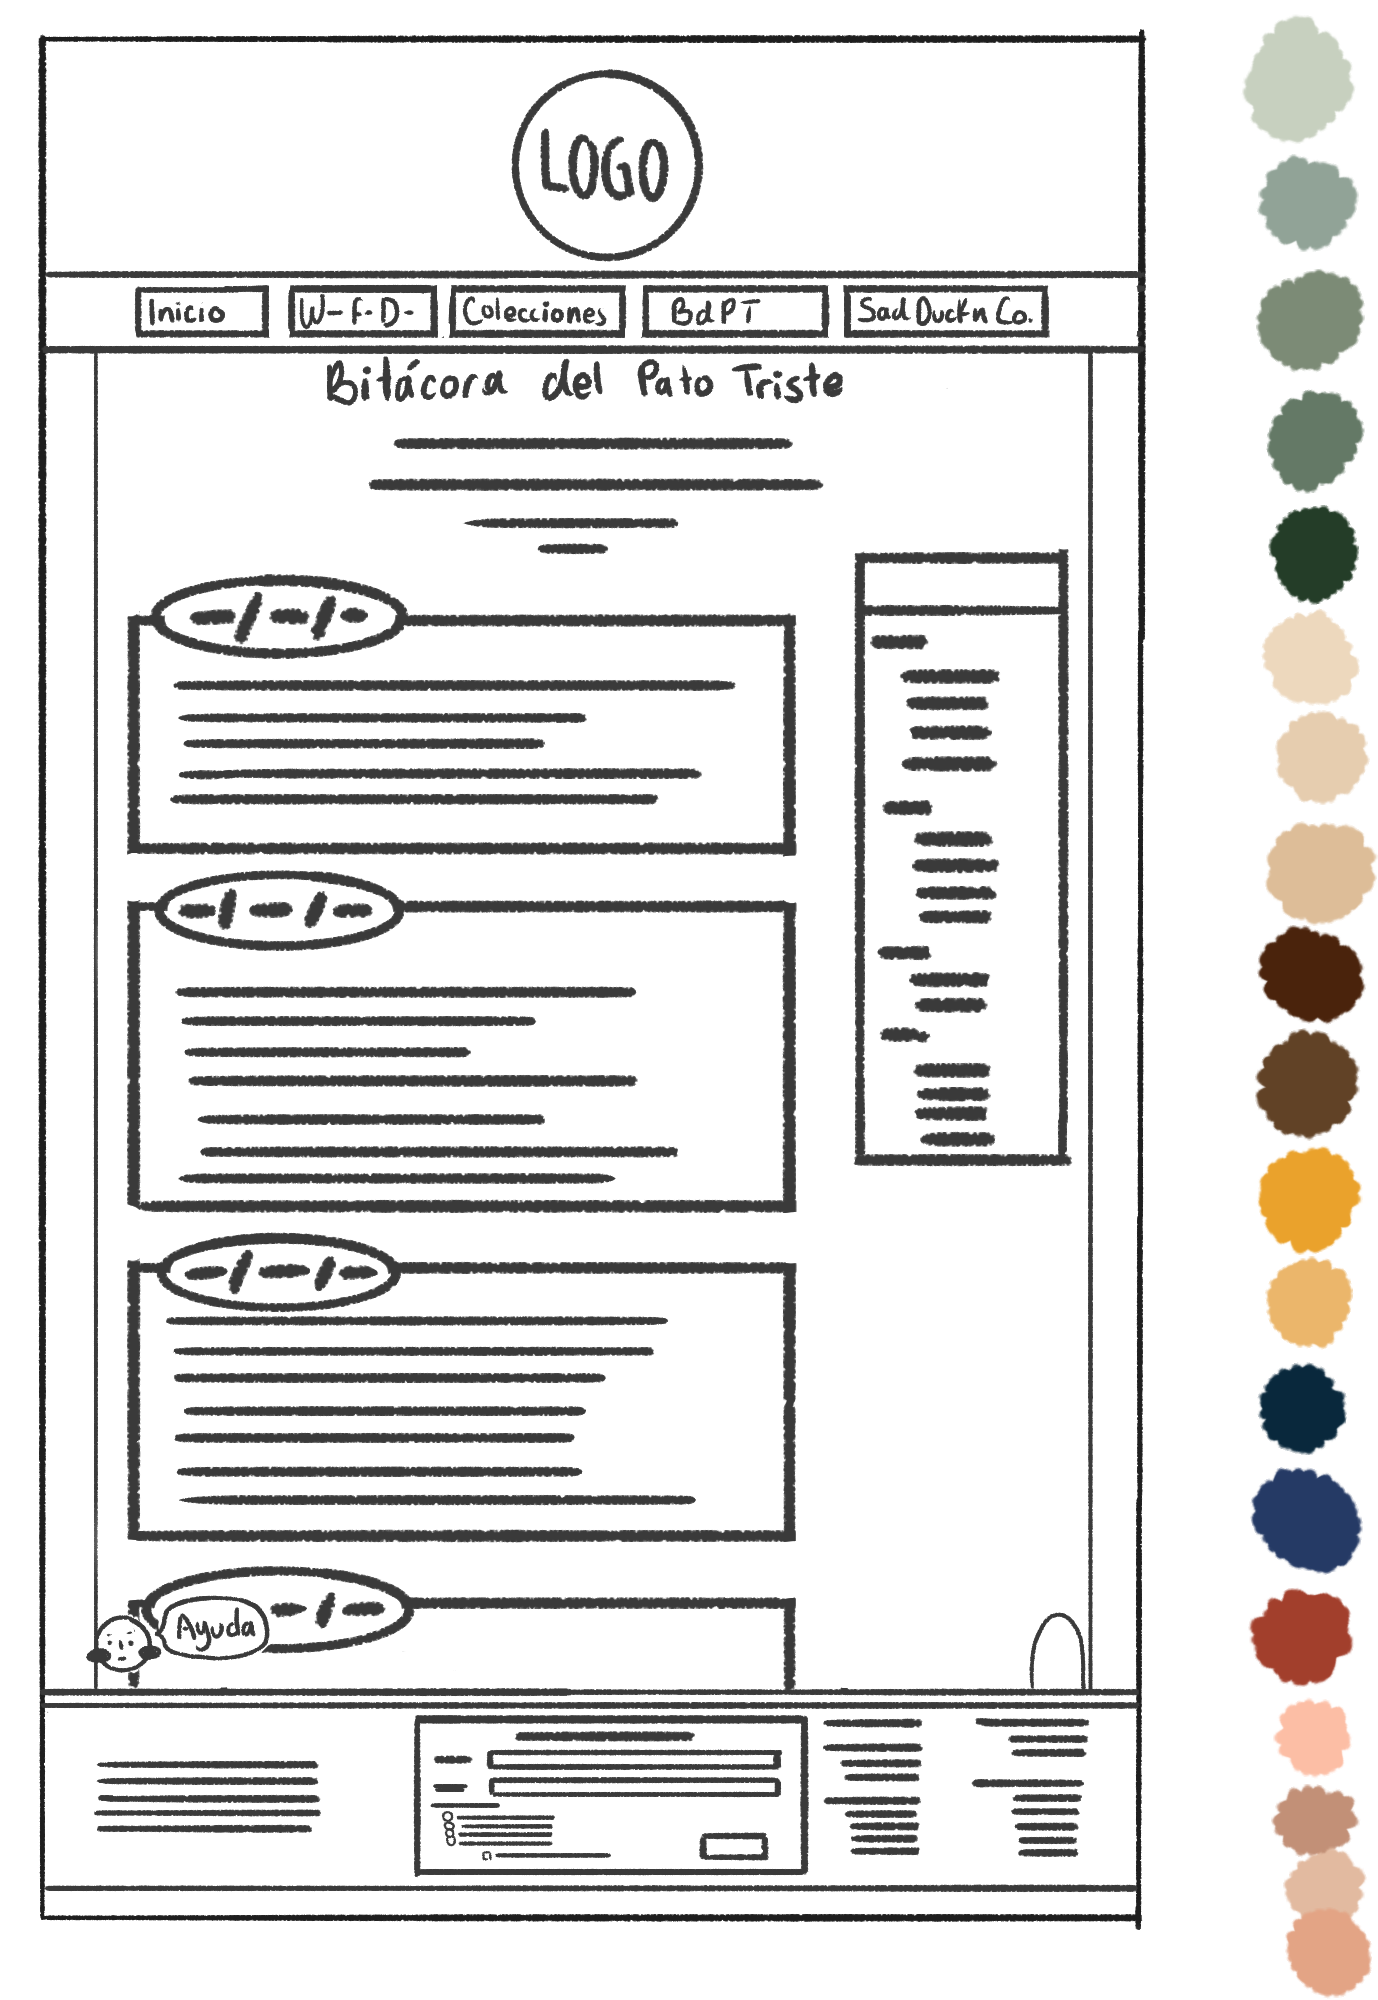 LOGO
Inicio W-F-D- Colecciones BdPT Sad Duckn Co.
Bitácora del Pato Triste
Ayuda